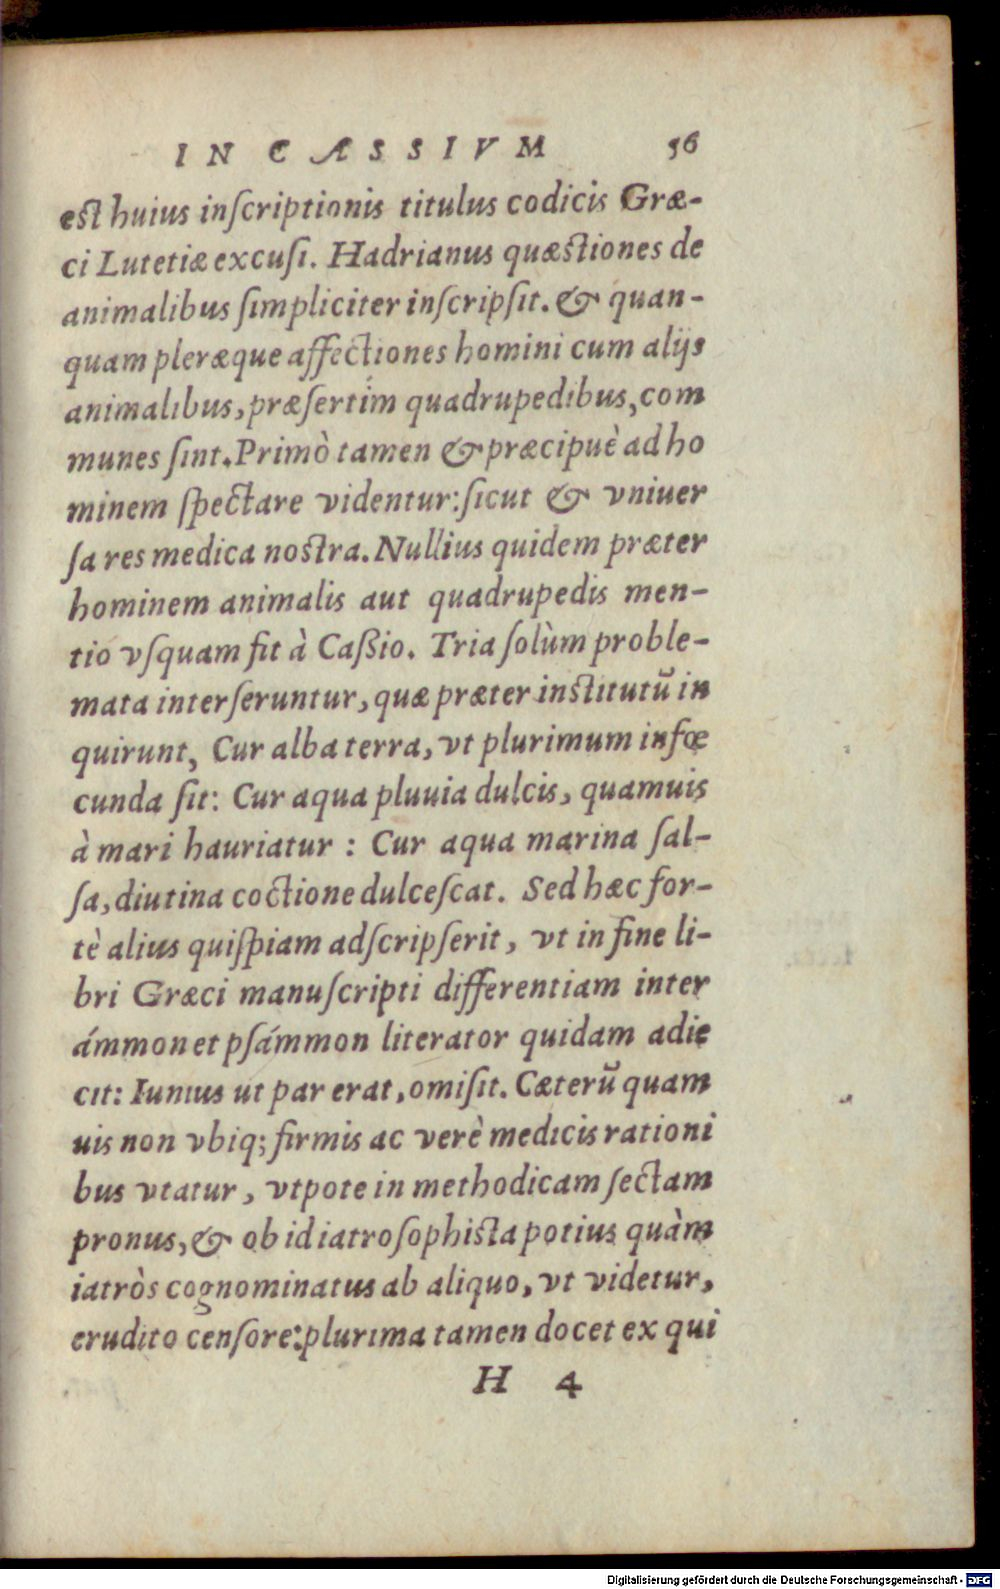 IN CÆSSIVM 56
est huius inſcriptionis titulus codicis Græ-
ci Lutetiæ excuſi. Hadrianus quæstiones de
animalibus ſimpliciter inſcripſit. & quan-
quam pleræque affectiones homini cum alijs
animalibus, præſertim quadrupedibus, com
munes ſint. Primò tamen & præcipuè ad ho
minem ſpectare videntur: ſicut & vniuer
ſa res medica nostra. Nullius quidem præter
hominem animalis aut quadrupedis men-
tio vſquam fit à Caßio. Tria ſolùm proble-
mata interſeruntur, quæ præter institutũ in
quirunt, Cur alba terra, vt plurimum infœ
cunda ſit: Cur aqua pluuia dulcis, quamuis
à mari hauriatur : Cur aqua marina ſal-
ſa, diutina coctione dulceſcat. Sed hæc for-
tè alius quiſpiam adſcripſerit, vt in fine li-
bri Græci manuſcripti differentiam inter
ámmon et pſámmon literator quidam adie
cit: Iunius ut par erat, omiſit. Cæterũ quam
uis non vbiq; firmis ac verè medicis rationi
bus vtatur, vtpote in methodicam ſectam
pronus, & ob id iatroſophista potius quàm
iatròs cognominatus ab aliquo, vt videtur,
erudito cenſore: plurima tamen docet ex qui
H 4
Digitalisierung gefördert durch die Deutsche Forschungsgemeinschaft - DFG